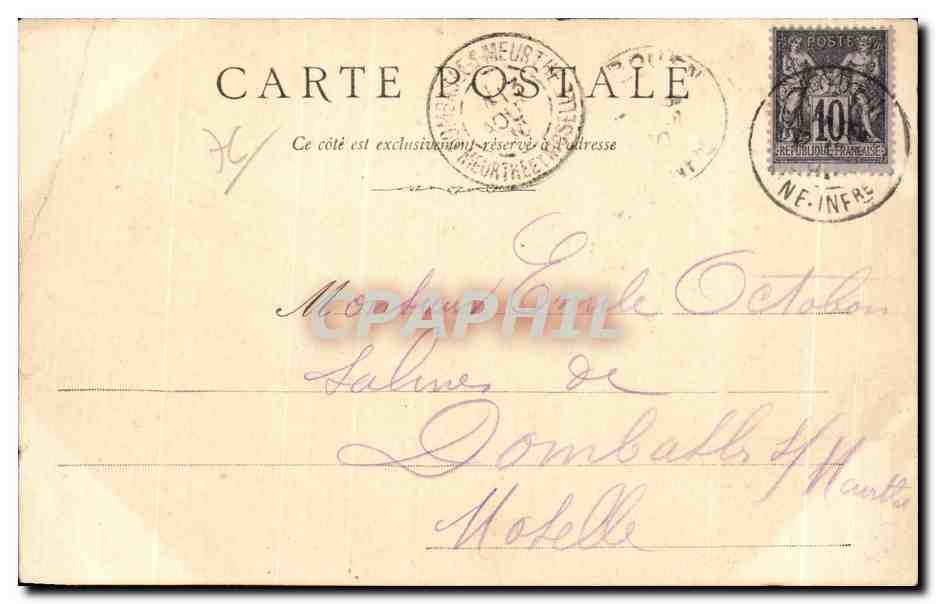 CARTE POSTALE
Ce côté est exclusivement réservé à l'adresse
POSTE
10
REPUBLIQUE FRANÇAISE
ROUEN
NE-INFRE
MEURTHE ET MOSELLE
CPAPHIL
Monsieur Emile Octobon
Salines de
Dombasle s/ Meurthe
Moselle